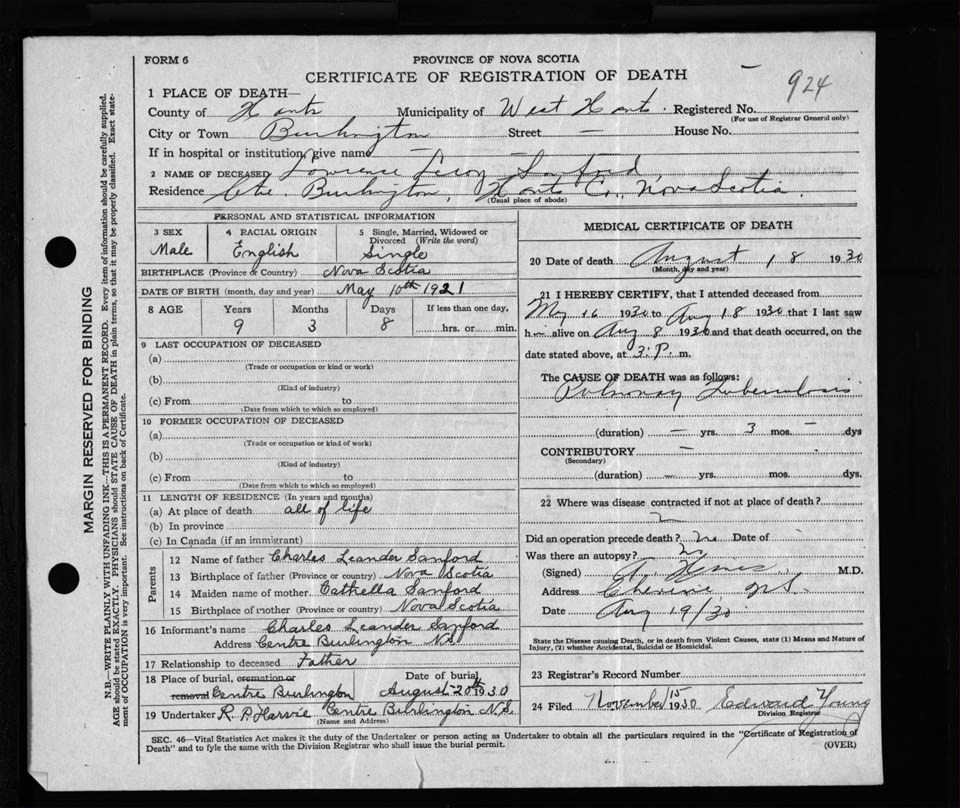 FORM 6
PROVINCE OF NOVA SCOTIA
CERTIFICATE OF REGISTRATION OF DEATH
924
1 PLACE OF DEATH—
County of Hants Municipality of West Hants Registered No.
(For use of Registrar General only)
City or Town Burlington Street — House No.
If in hospital or institution, give name —
2 NAME OF DECEASED Lawrence Leroy Sanford
Residence Ctre Burlington, Hants Co., Nova Scotia.
(Usual place of abode)
PERSONAL AND STATISTICAL INFORMATION
3 SEX
Male
4 RACIAL ORIGIN
English
5 Single, Married, Widowed or
Divorced (Write the word)
Single
BIRTHPLACE (Province & Country) Nova Scotia
DATE OF BIRTH (month, day and year) May 10th 1921
8 AGE Years Months Days If less than one day,
9 3 8 hrs. or min.
9 LAST OCCUPATION OF DECEASED
(a)
(Trade or occupation or kind or work)
(b)
(Kind of industry)
(c) From to
(Date from which to which so employed)
10 FORMER OCCUPATION OF DECEASED
(a)
(Trade or occupation or kind of work)
(b)
(Kind of industry)
(c) From to
(Date from which to which so employed)
11 LENGTH OF RESIDENCE (In years and months)
(a) At place of death all of life
(b) In province
(c) In Canada (if an immigrant)
Parents
12 Name of father Charles Leander Sanford
13 Birthplace of father (Province or country) Nova Scotia
14 Maiden name of mother Cathella Sanford
15 Birthplace of mother (Province or country) Nova Scotia
16 Informant's name Charles Leander Sanford
Address Centre Burlington N.S.
17 Relationship to deceased Father
18 Place of burial, cremation or Date of burial
removal Centre Burlington August 20th 1930
19 Undertaker R. P. Harvie Centre Burlington N.S.
(Name and Address)
MEDICAL CERTIFICATE OF DEATH
20 Date of death August 18 1930
(Month, day and year)
21 I HEREBY CERTIFY, that I attended deceased from
May 16 1930 to Aug 18 1930 that I last saw
h alive on Aug 8 1930 and that death occurred, on the
date stated above, at 3 P. m.
The CAUSE OF DEATH was as follows:
Pulmonary Tuberculosis
(duration) — yrs. 3 mos. — dys
CONTRIBUTORY —
(Secondary)
(duration) — yrs. mos. dys.
22 Where was disease contracted if not at place of death?
Did an operation precede death? No Date of
Was there an autopsy? No
(Signed) M.D.
Address Cheverie N.S.
Date Aug 19/30
State the Disease causing Death, or in death from Violent Causes, state (1) Means and Nature of
Injury, (2) whether Accidental, Suicidal or Homicidal.
23 Registrar's Record Number
24 Filed November 15 1930 Edward Young
Division Registrar
SEC. 46—Vital Statistics Act makes it duty of the Undertaker or person acting as Undertaker to obtain all the particulars required in the "Certificate of Registration of
Death" and to fyle the same with the Division Registrar who shall issue the burial permit.
(OVER)
MARGIN RESERVED FOR BINDING
N.B.—WRITE PLAINLY WITH UNFADING INK—THIS IS A PERMANENT RECORD. Every item of information should be carefully supplied.
AGE should be stated EXACTLY. PHYSICIANS should STATE CAUSE OF DEATH in plain terms, so that it may be properly classified. Exact state-
ment of OCCUPATION is very important. See instructions on back of Certificate.